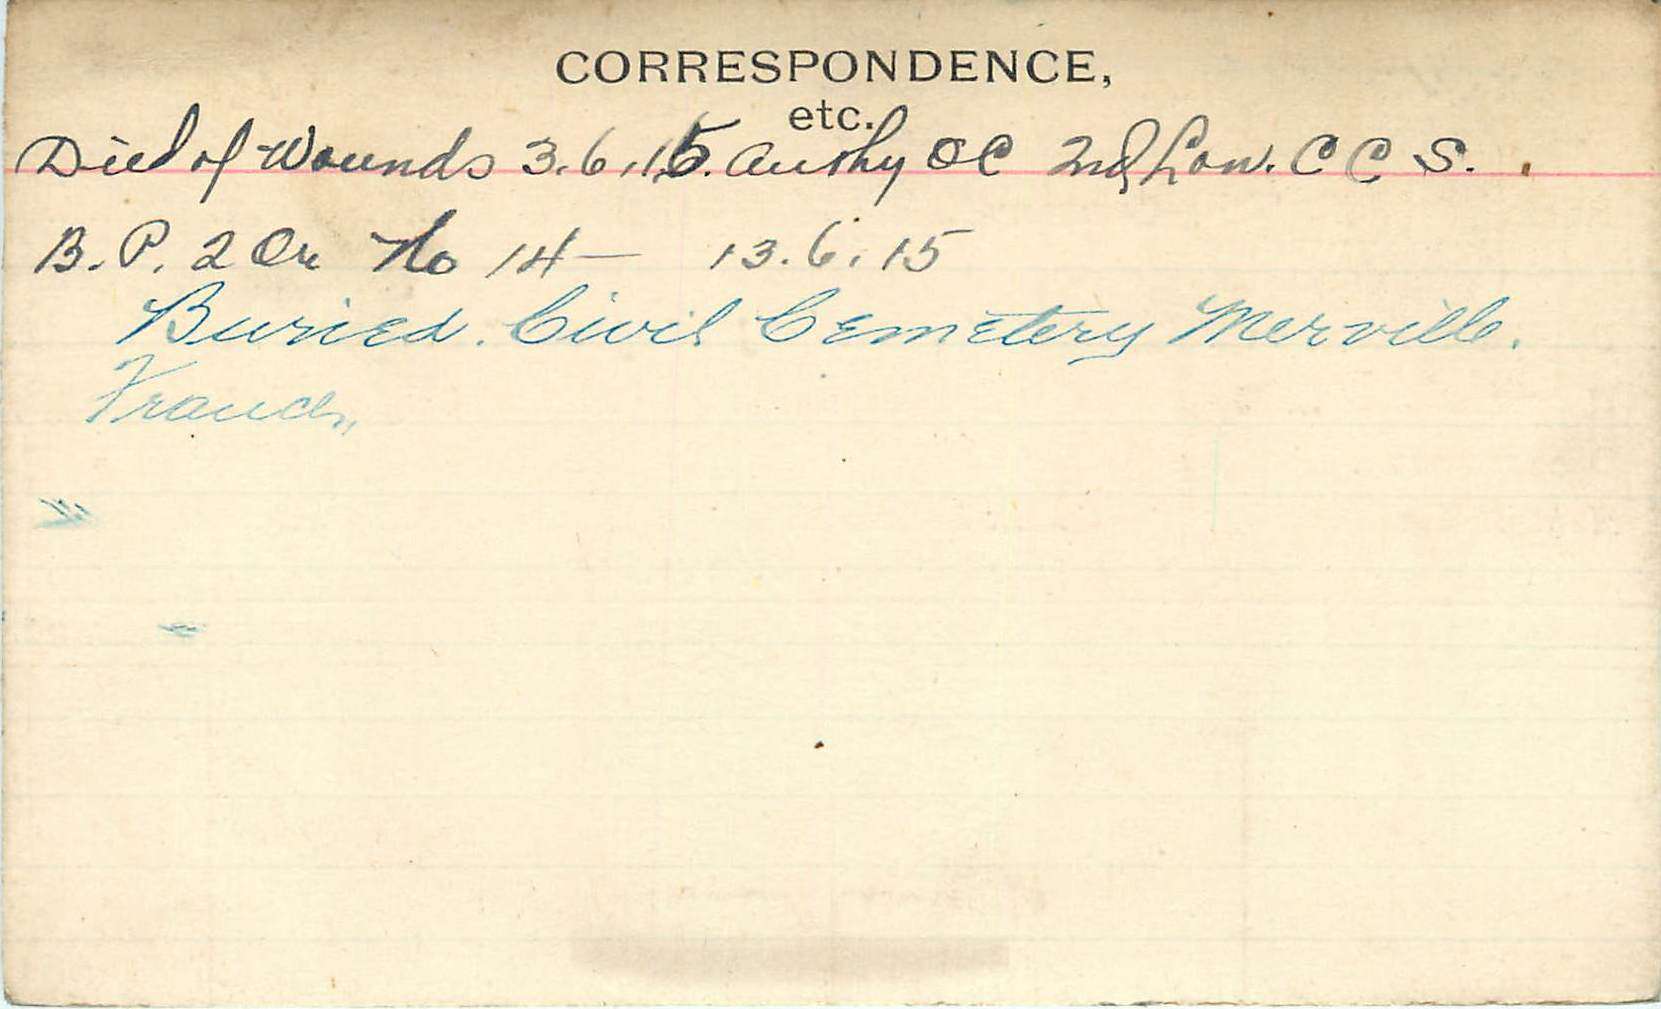 CORRESPONDENCE,
etc.
Died of Wounds 3.6.15. Authy OC 2nd Lon. C C S.
B. P. 2 Or No 14 — 13.6.15
Buried. Civil Cemetery Merville.
France,,